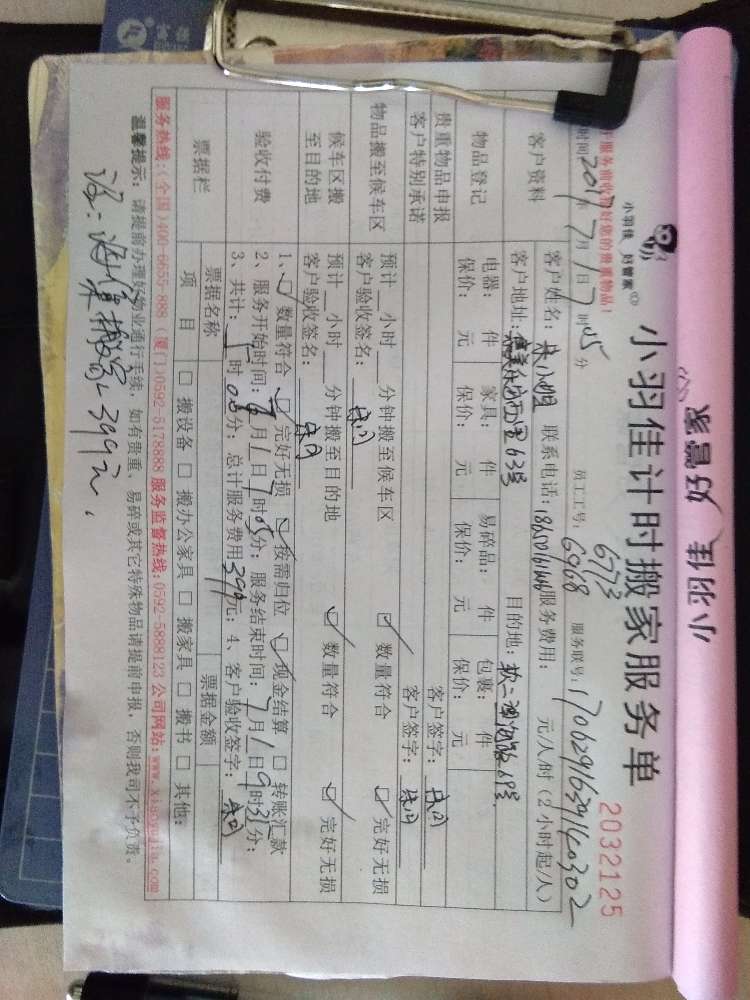 小羽佳 好管家
小羽佳 好管家
小羽佳计时搬家服务单
2032125
服务前收好您的贵重物品！
6773
时间2017年7月1日7时05分 员工工号：6968 服务联号：
客户资料
客户姓名：朱小姐 联系电话： 服务费用： 元/人.时（2小时起/人）
客户地址： 63号 目的地：
物品登记
电器： 件 家具： 件 易碎品： 件 包裹： 件
保价： 元 保价： 元 保价： 元 保价： 元
贵重物品申报 客户签字：
客户特别承诺 客户签字：
物品搬至候车区
预计 小时 分钟搬至候车区 数量符合 完好无损
客户验收签名：
候车区搬至目的地
预计 小时 分钟搬至目的地 数量符合 完好无损
客户验收签名：
验收付费
1、 数量符合 完好无损 按需归位 现金结算 转账汇款
2、服务开始时间：7月1日7时05分； 服务结束时间：7月1日9时31分；
3、共计： 时 分；总计服务费用399元；4、客户验收签字：
票据栏
票据名称 票据金额
项目 搬设备 搬办公家具 搬家具 搬书 其他：
服务热线：（全国）400-6655-888（厦门）0592-5178888 服务监督热线：0592-5888123 公司网站：www.xiaoyujia.com
温馨提示：请提前办理好物业通行手续，如有贵重、易碎或其它特殊物品请提前申报，否则我司不予负责。
399元